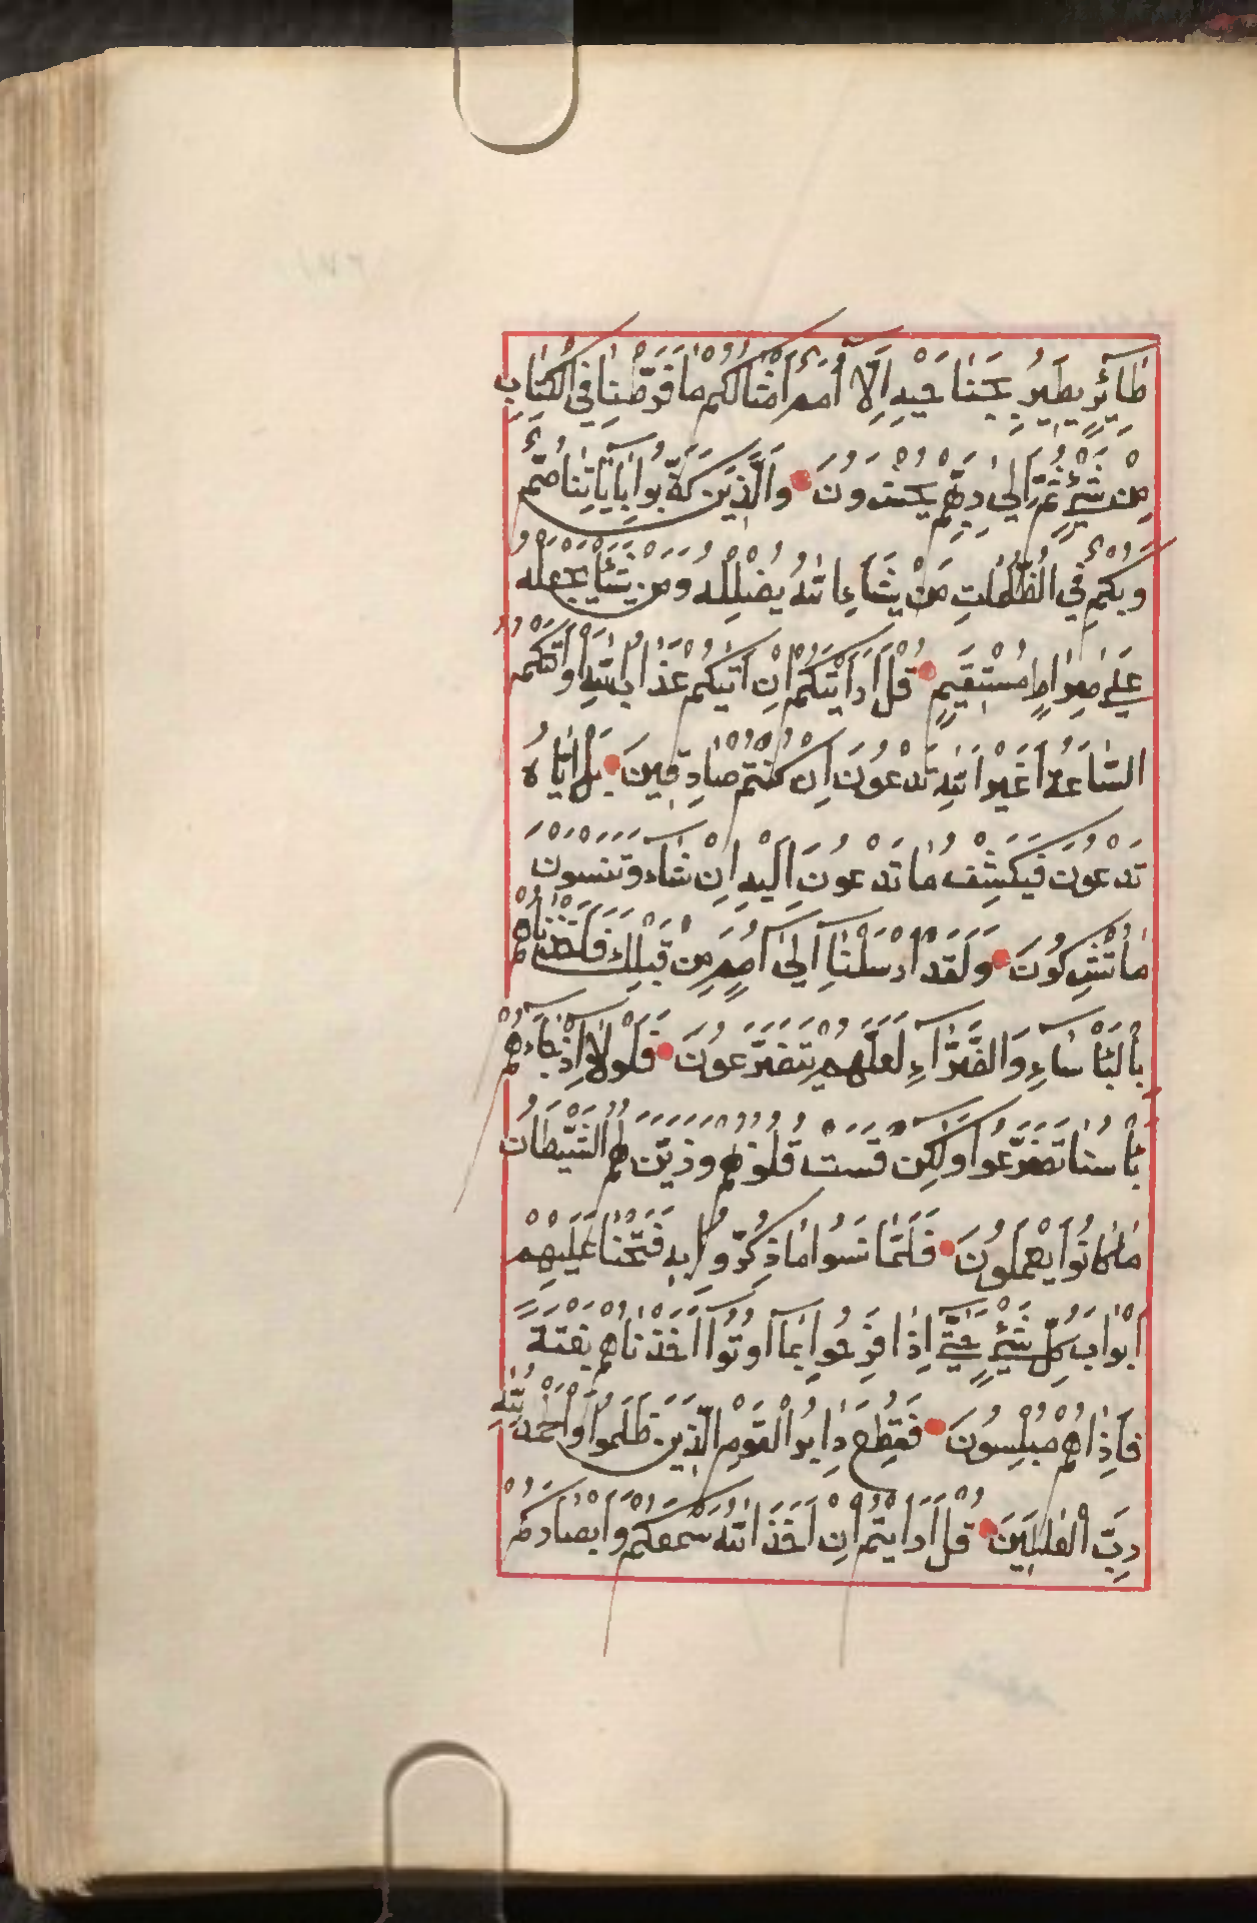 طَآئِرٍ يَطِيرُ بِجَنَاحَيْهِ اِلَّآ اُمَمٌ اَمْثَالُكُمْ مَا فَرَّطْنَا فِي الْكِتَابِ
مِنْ شَيْءٍ ثُمَّ اِلَى رَبِّهِمْ يُحْشَرُونَ وَالَّذِينَ كَذَّبُوا بِآيَاتِنَا صُمٌّ
وَبُكْمٌ فِي الظُّلُمَاتِ مَنْ يَشَاءِ اللهُ يُضْلِلْهُ وَمَنْ يَشَأْ يَجْعَلْهُ
عَلَى صِرَاطٍ مُسْتَقِيمٍ قُلْ اَرَاَيْتَكُمْ اِنْ اَتَيكُمْ عَذَابُ اللهِ اَوْ اَتَتْكُمُ
السَّاعَةُ اَغَيْرَ اللهِ تَدْعُونَ اِنْ كُنْتُمْ صَادِقِينَ بَلْ اِيَّاهُ
تَدْعُونَ فَيَكْشِفُ مَا تَدْعُونَ اِلَيْهِ اِنْ شَاءَ وَتَنْسَوْنَ
مَا تُشْرِكُونَ وَلَقَدْ اَرْسَلْنَا اِلَى اُمَمٍ مِنْ قَبْلِكَ فَاَخَذْنَاهُمْ
بِالْبَأْسَاءِ وَالضَّرَّآءِ لَعَلَّهُمْ يَتَضَرَّعُونَ فَلَوْلَا اِذْ جَاءَهُمْ
بَأْسُنَا تَضَرَّعُوا وَلَكِنْ قَسَتْ قُلُوبُهُمْ وَزَيَّنَ لَهُمُ الشَّيْطَانُ
مَا كَانُوا يَعْمَلُونَ فَلَمَّا نَسُوا مَا ذُكِّرُوا بِهِ فَتَحْنَا عَلَيْهِمْ
اَبْوَابَ كُلِّ شَيْءٍ حَتَّى اِذَا فَرِحُوا بِمَآ اُوتُوآ اَخَذْنَاهُمْ بَغْتَةً
فَاِذَا هُمْ مُبْلِسُونَ فَقُطِعَ دَابِرُ الْقَوْمِ الَّذِينَ ظَلَمُوا وَالْحَمْدُ لِلّٰهِ
رَبِّ الْعَالَمِينَ قُلْ اَرَاَيْتُمْ اِنْ اَخَذَ اللهُ سَمْعَكُمْ وَاَبْصَارَكُمْ